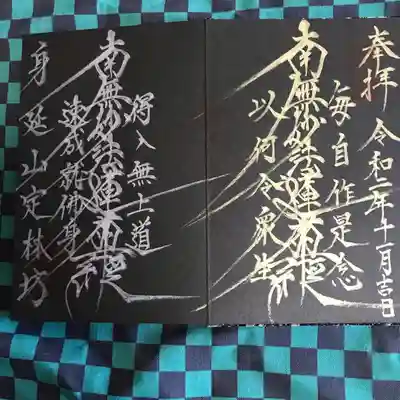 奉拝 令和二年十一月吉日
毎自作是念
南無妙法蓮華経
以何令衆生
得入無上道
南無妙法蓮華経
速成就佛身
身延山定林坊